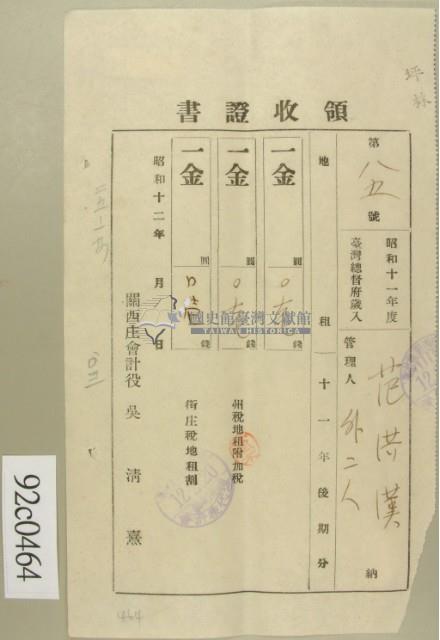 領收證書
第八五號
昭和十一年度
臺灣總督府歲入
管理人
范洪漢
外二人
納
地租(十一年後期分
一金 圓 錢
一金 圓 錢
州稅地租附加稅
一金 圓 錢
街庄稅地租割
昭和十二年 月 日
關西庄會計役 吳清熹
坪林
國史館臺灣文獻館
TAIWAN HISTORICA
92c0464
464